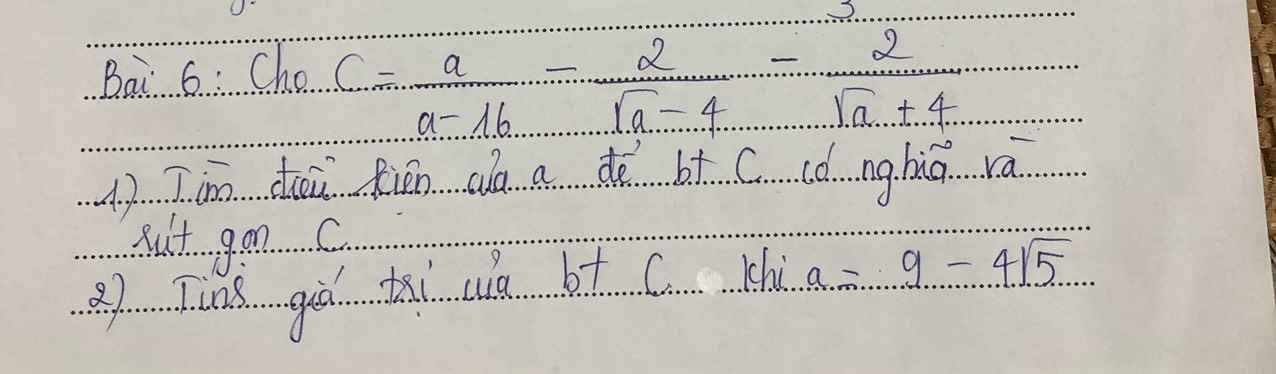 Bài 6: Cho C = a/(a-16) - 2/(√a - 4) - 2/(√a + 4)
1) Tìm điều kiện của a để bt C có nghĩa và
rút gọn C
2) Tính giá trị của bt C khi a = 9 - 4√5